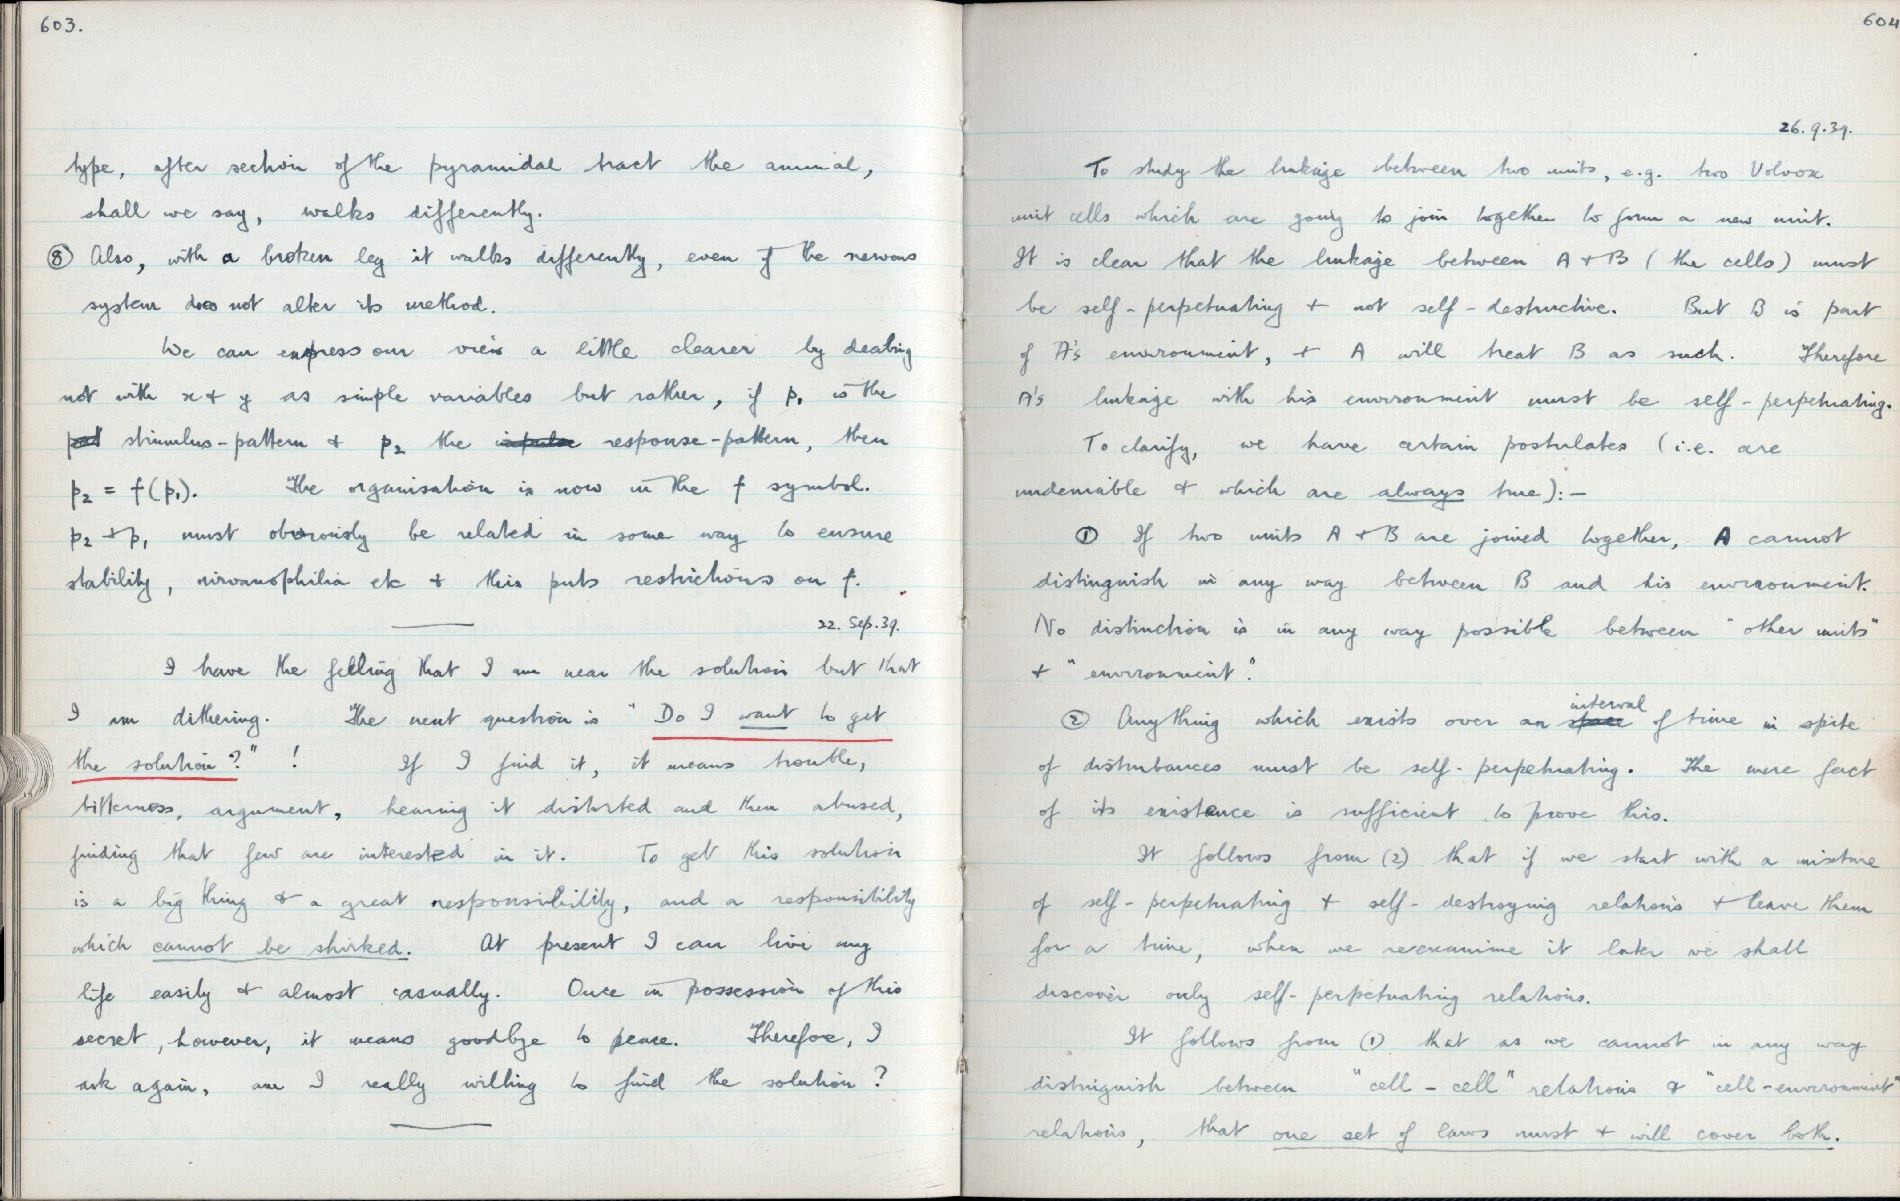 603.
type, after section of the pyramidal tract the animal,
shall we say, walks differently.
⑧ Also, with a broken leg it walks differently, even if the nervous
system does not alter its method.
We can express our view a little clearer by dealing
not with x + y as simple variables but rather, if p₁ is the
pat stimulus-pattern + p₂ the impulse response-pattern, then
p₂ = f(p₁). The organisation is now in the f symbol.
p₂ + p₁ must obviously be related in some way to ensure
stability, nirvanophilia etc + this puts restrictions on f.
22. Sep. 39.
I have the felling that I am near the solution but that
I am dithering. The next question is "Do I want to get
the solution?" ! If I find it, it means trouble,
bitterness, argument, hearing it distorted and then abused,
finding that few are interested in it. To get this solution
is a big thing + a great responsibility, and a responsibility
which cannot be shirked. At present I can live my
life easily + almost casually. Once in possession of this
secret, however, it means goodbye to peace. Therefore, I
ask again, am I really willing to find the solution?
604
26.9.39.
To study the linkage between two units, e.g. two Volvox
unit cells which are going to join together to form a new unit.
It is clear that the linkage between A + B (the cells) must
be self-perpetuating + not self-destructive. But B is part
of A's environment, + A will treat B as such. Therefore
A's linkage with his environment must be self-perpetuating.
To clarify, we have certain postulates (i.e. are
undeniable + which are always true):-
① If two units A + B are joined together, A cannot
distinguish in any way between B and his environment.
No distinction is in any way possible between "other units"
+ "environment".
interval
② Anything which exists over an space of time in spite
of disturbances must be self-perpetuating. The mere fact
of its existence is sufficient to prove this.
It follows from (2) that if we start with a mixture
of self-perpetuating + self-destroying relations + leave them
for a time, when we reexamine it later we shall
discover only self-perpetuating relations.
It follows from (1) that as we cannot in any way
distinguish between "cell-cell" relations + "cell-environment"
relations, that one set of laws must + will cover both.